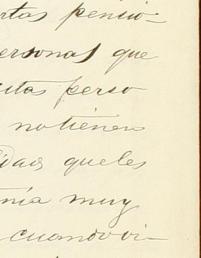 rtas pensio-
ersonas que
stas perso
no tienen
que les
nía muy
cuando vi-